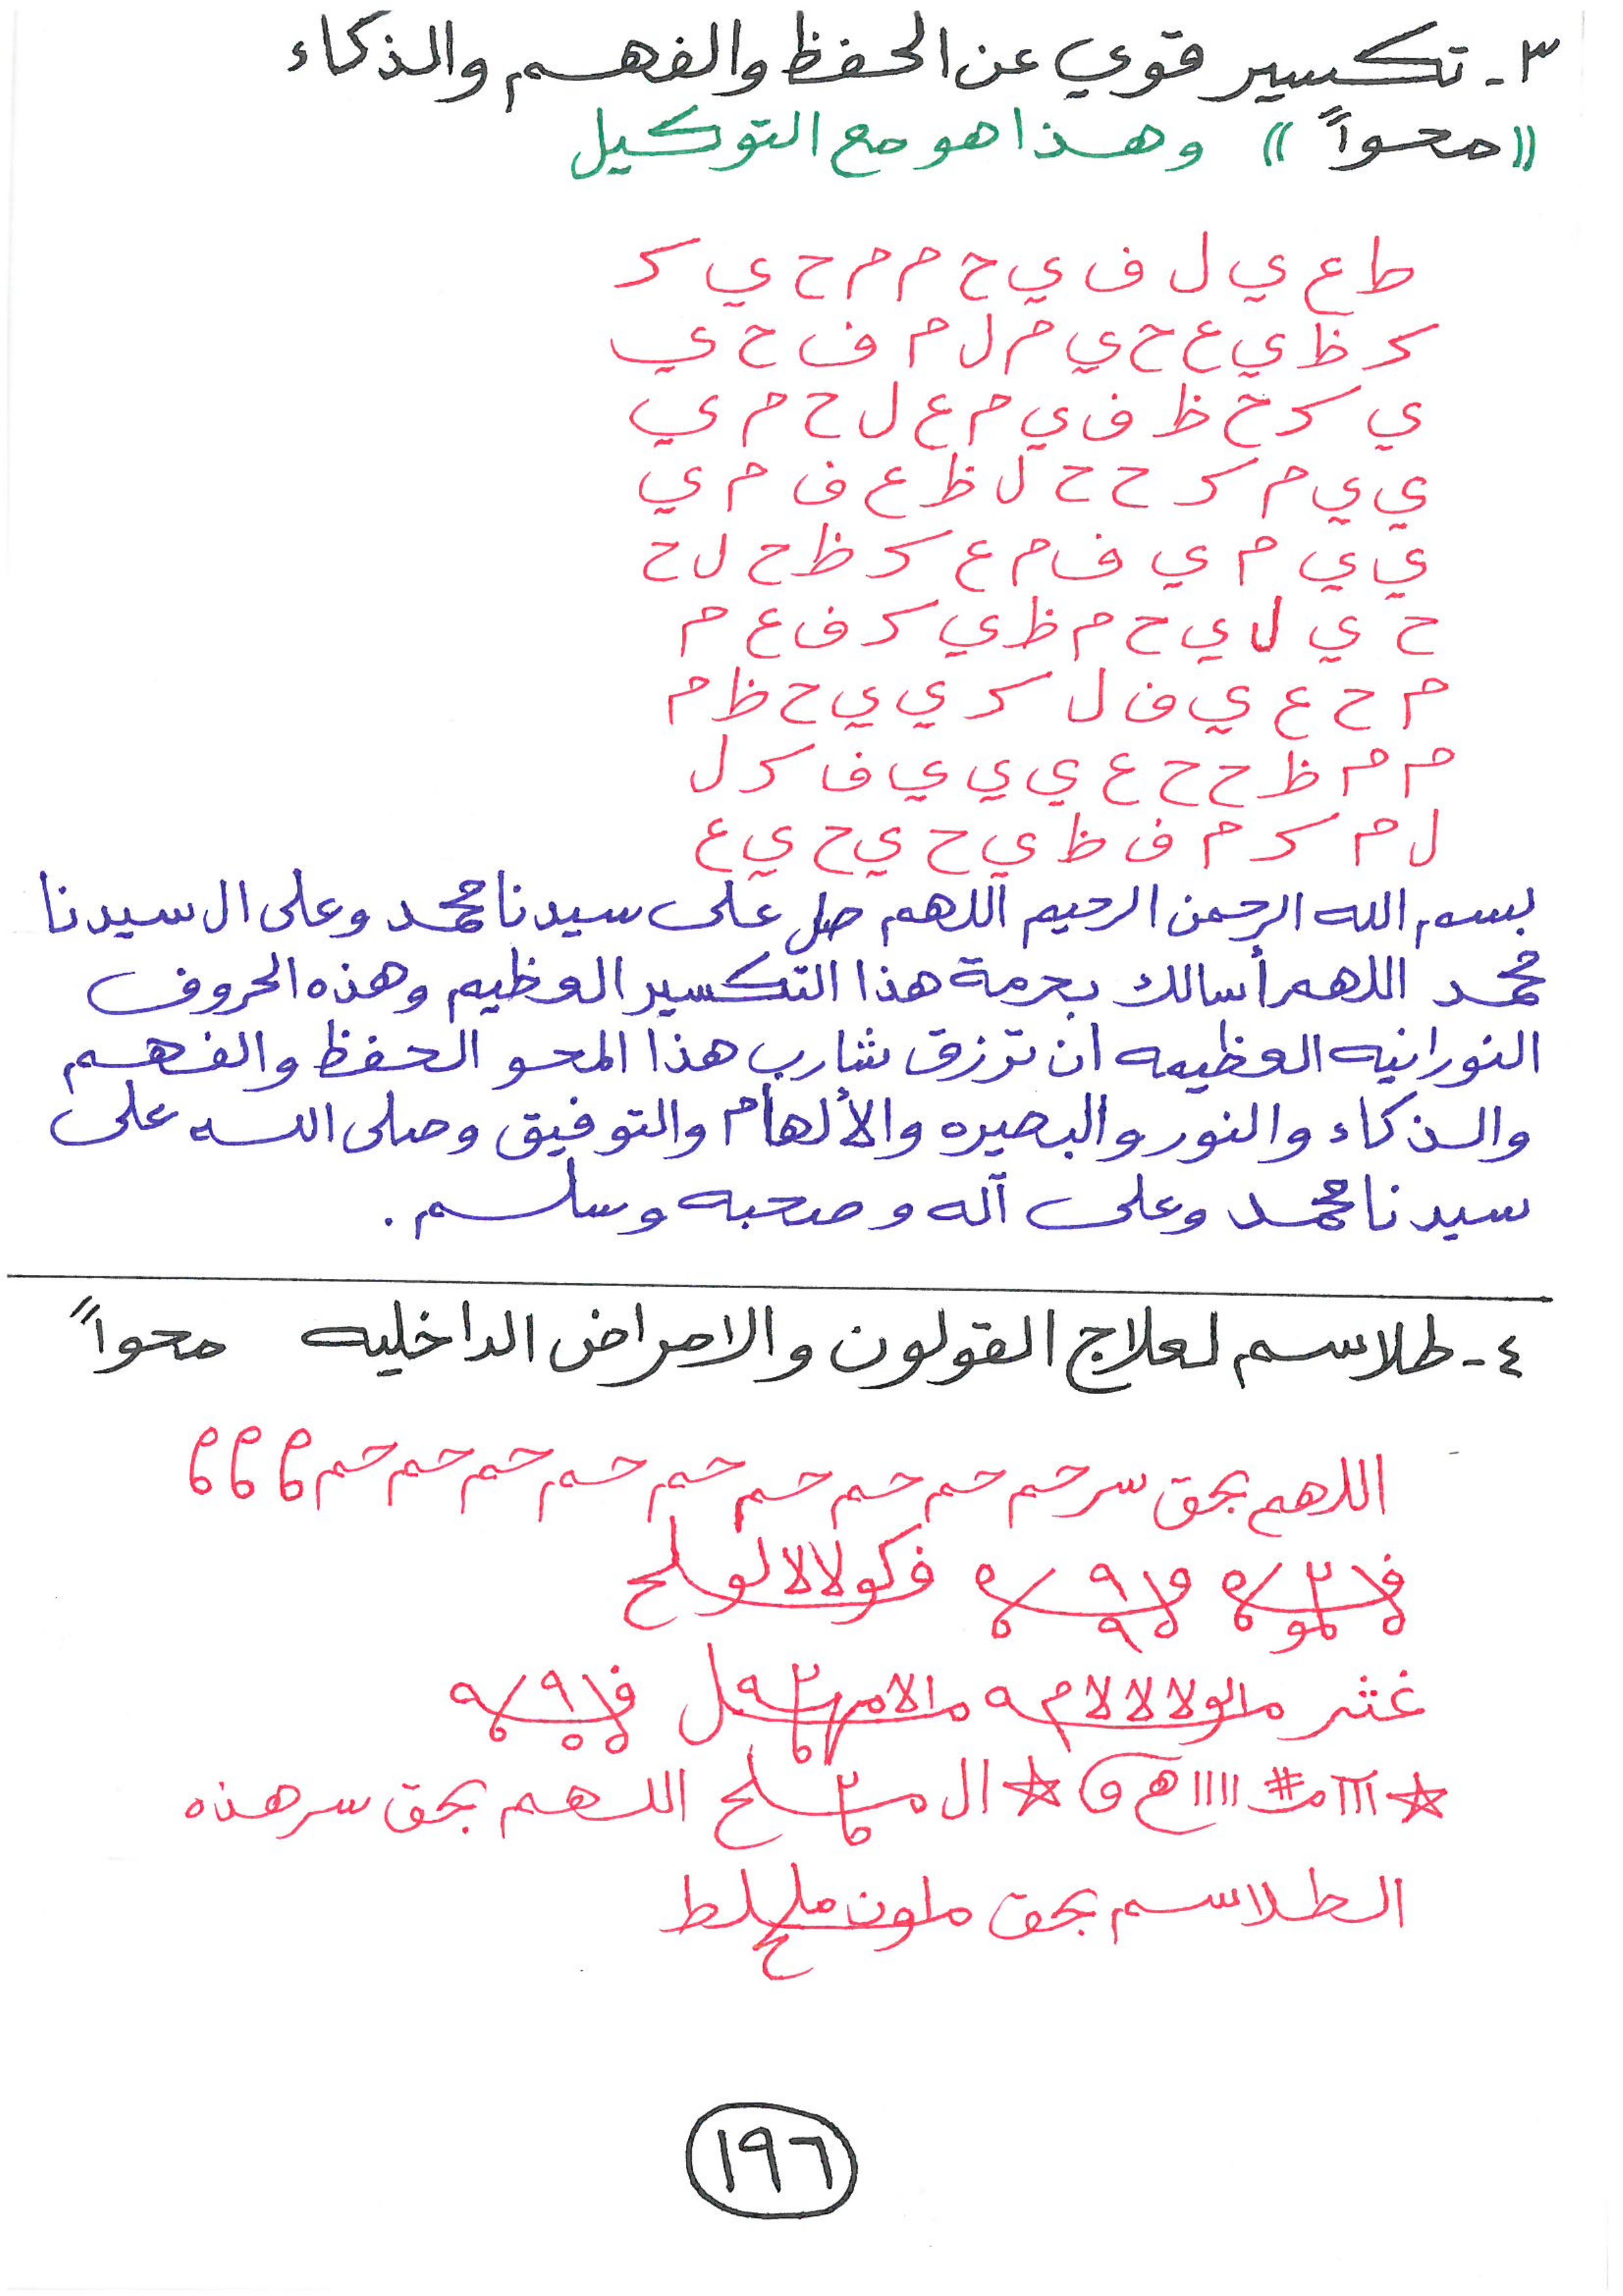 ٣- تكسير قوي عن الحفظ والفهم والذكاء
((محواً)) وهذا هو مع التوكيل
ط ع ي ل ف ي ح م م ح ي ك
ك ظ ي ع ح ي م ل م ف ح ي
ي ك ح ظ ف ي م ع ل ح م ي
ي ي م ك ح ح ل ظ ع ف م ي
ي ي م ي ف م ع ك ظ ح ل ح
ح ي ل ي ح م ظ ي ك ف ع م
م ح ع ي ف ل ك ي ي ح ظ م
م م ظ ح ح ع ي ي ي ف ك ل
ل م ك م ف ظ ي ح ي ح ي ع
بسم الله الرحمن الرحيم اللهم صل على سيدنا محمد وعلى ال سيدنا
محمد اللهم أسالك بحرمة هذا التكسير العظيم وهذه الحروف
النورانيه العظيمه ان ترزق شارب هذا المحو الحفظ والفهم
والذكاء والنور والبصيره والألهام والتوفيق وصلى الله على
سيدنا محمد وعلى آله وصحبه وسلم .
٤- طلاسم لعلاج القولون والامراض الداخليه محواً
اللهم بحق سر حم حم حم حم حم حم حم حم حم
ال اللهم بحق سر هذه
الطلاسم بحق
١٩٦